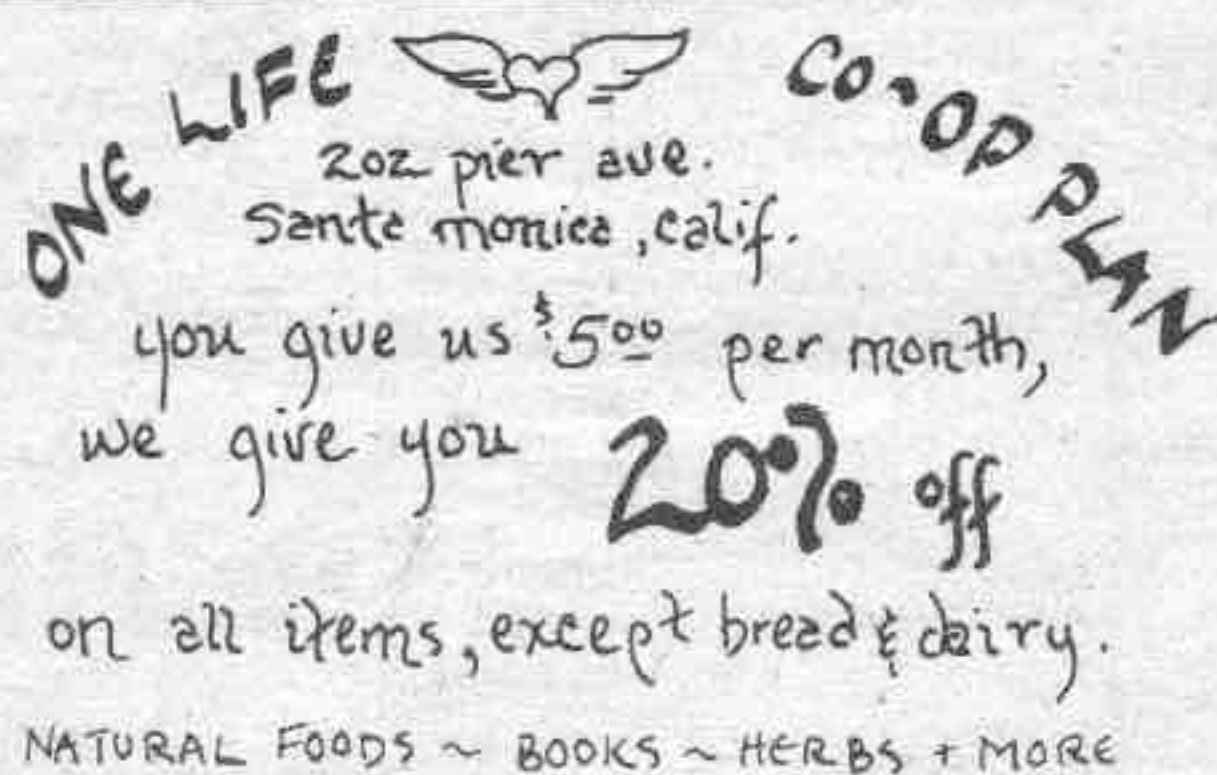 ONE LIFE CO-OP PLAN
202 pier ave.
Santa monica, calif.
you give us $5.00 per month,
we give you 20% off
on all items, except bread & dairy.
NATURAL FOODS ~ BOOKS ~ HERBS + MORE